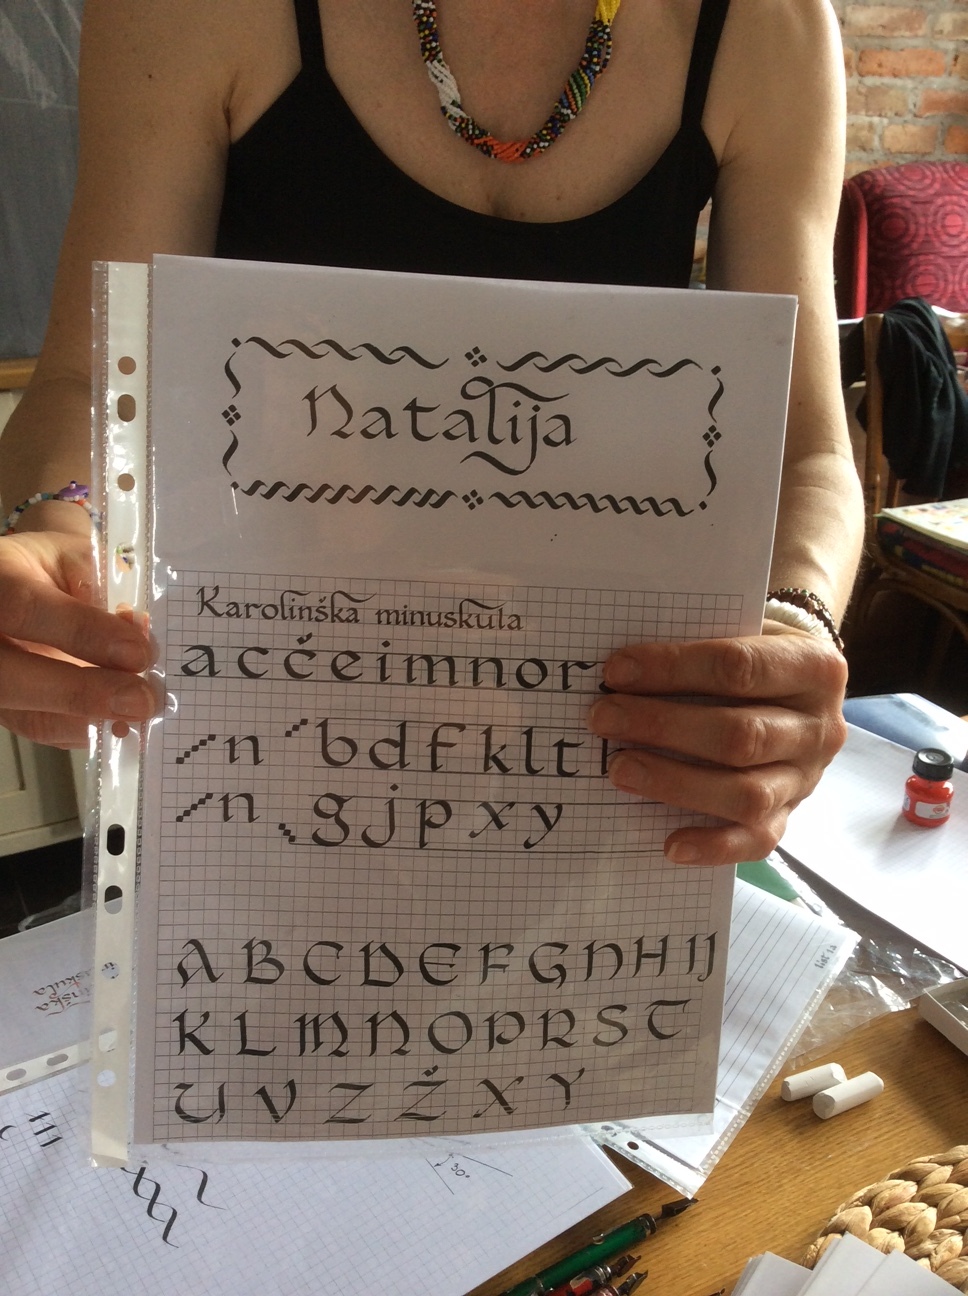 Natalija
Karolinška minuskula
a c č e i m n o r
n b d f k l t
n g j p x y
A B C D E F G D H I J
K L M N O P R S T
U V Z Ž X Y
30°